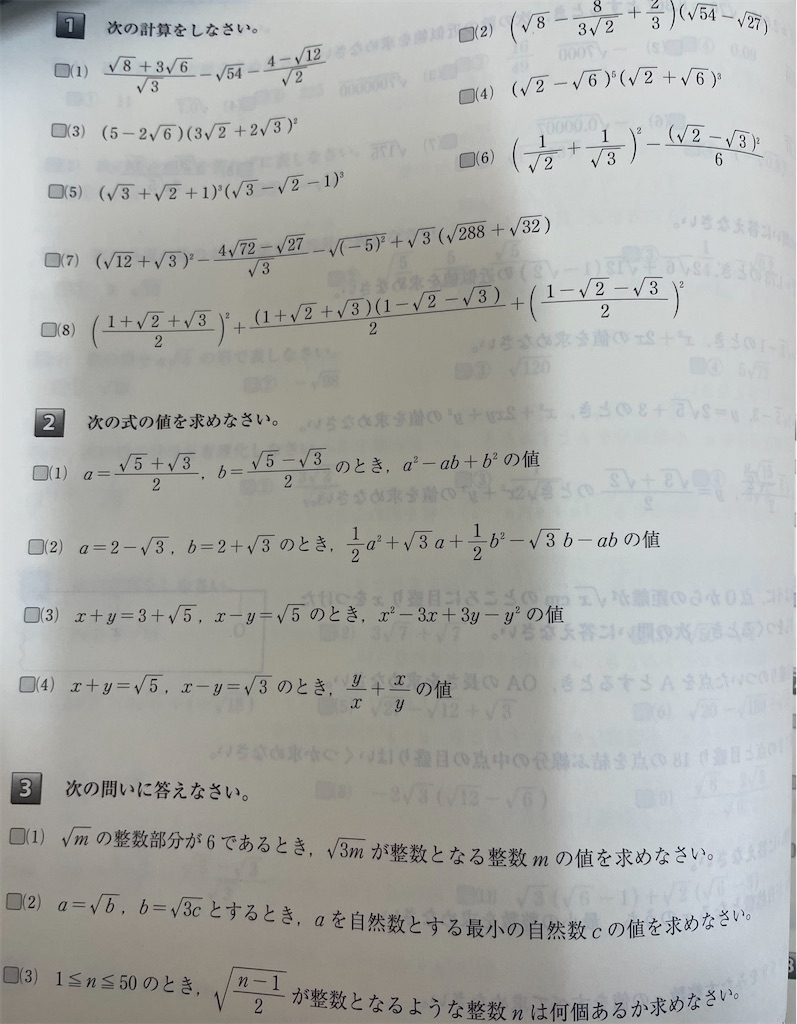 1 次の計算をしなさい。
(1) (√8+3√6)/√3 − √54 − (4−√12)/√2
(2) (√8 − 8/(3√2) + 2/3)(√54−√27)
(3) (5−2√6)(3√2+2√3)²
(4) (√2−√6)⁵(√2+√6)³
(5) (√3+√2+1)³(√3−√2−1)³
(6) (1/√2 + 1/√3)² − (√2−√3)²/6
(7) (√12+√3)² − (4√72−√27)/√3 − √(−5)² + √3(√288+√32)
(8) ((1+√2+√3)/2)² + (1+√2+√3)(1−√2−√3)/2 + ((1−√2−√3)/2)²
2 次の式の値を求めなさい。
(1) a=(√5+√3)/2, b=(√5−√3)/2 のとき, a²−ab+b² の値
(2) a=2−√3, b=2+√3 のとき, 1/2 a²+√3 a+1/2 b²−√3 b−ab の値
(3) x+y=3+√5, x−y=√5 のとき, x²−3x+3y−y² の値
(4) x+y=√5, x−y=√3 のとき, y/x + x/y の値
3 次の問いに答えなさい。
(1) √m の整数部分が6であるとき, √3m が整数となる整数 m の値を求めなさい。
(2) a=√b, b=√3c とするとき, a を自然数とする最小の自然数 c の値を求めなさい。
(3) 1≦n≦50 のとき, √((n−1)/2) が整数となるような整数 n は何個あるか求めなさい。